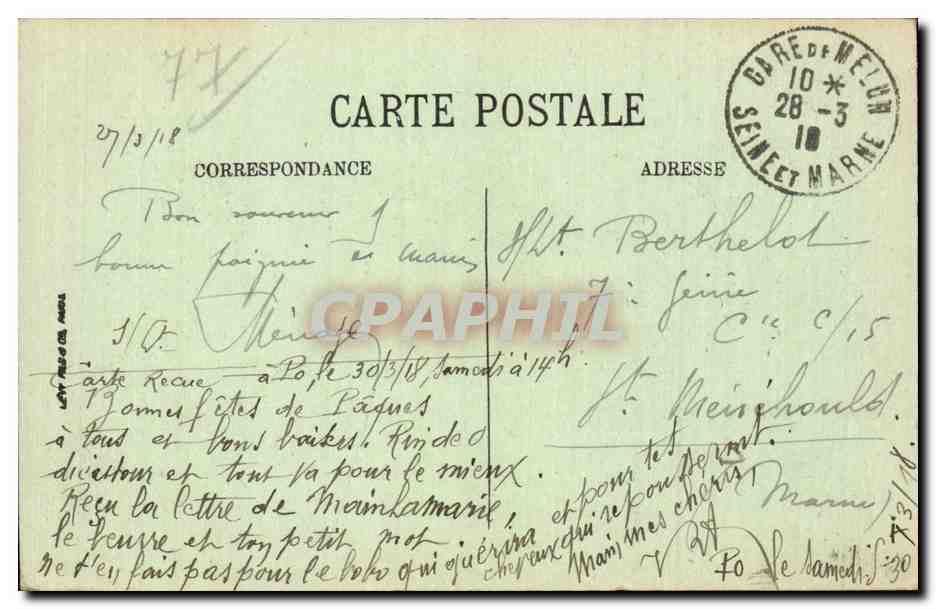 77
27/3/18
CARTE POSTALE
CORRESPONDANCE
ADRESSE
GARE DE MELUN
10 *
28 -3
18
SEINE ET MARNE
Bon souvenir
bonne poignée de mains
Ménage
S/Lt Berthelot
7è Génie
Cie C/15
Ste Ménéhould
(Marne)
CPARPHIL
LEVY FILS & CIE PARIS
Carte Reçue - à Po, le 30/3/18, samedi à 14h.
Bonnes fêtes de Pâques
à tous et bons baisers. Rin de
et tout va pour le mieux.
Reçu la lettre de
le beurre et ton petit mot
Ne t'en fais pas pour le bobo qui guérira et pour tes
cheveux qui repousseront.
mes chéris
Po le samedi 30/3/18.